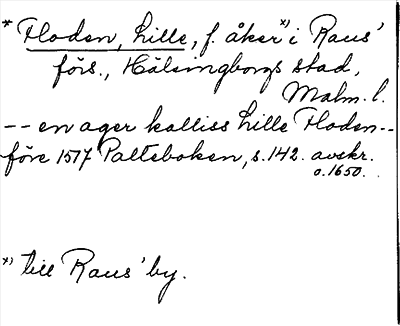 * Floden, Lille, f. åker *) i Raus'
förs., Hälsingborgs stad,
Malm. l.
-- en ager kalliss Lille Floden --
före 1517 Palteboken, s. 142. avskr.
o. 1650.
*) till Raus' by.